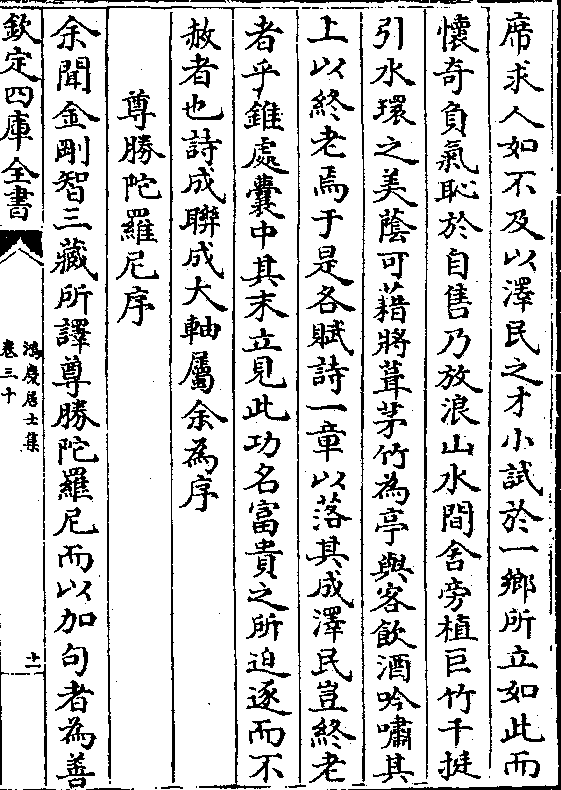 席求人如不及以澤民之才小試於一鄉所立如此而
懷奇負氣恥於自售乃放浪山水間舍旁植巨竹千挺
引水環之美蔭可藉將葺茅竹為亭與客飲酒吟嘯其
上以終老焉于是各賦詩一章以落其成澤民豈終老
者乎錐處囊中其末立見此功名富貴之所迫逐而不
赦者也詩成聯成大軸屬余為序
尊勝陀羅尼序
余聞金剛智三藏所譯尊勝陀羅尼而以加句者為善
欽定四庫全書
鴻慶居士集
卷三十
十一